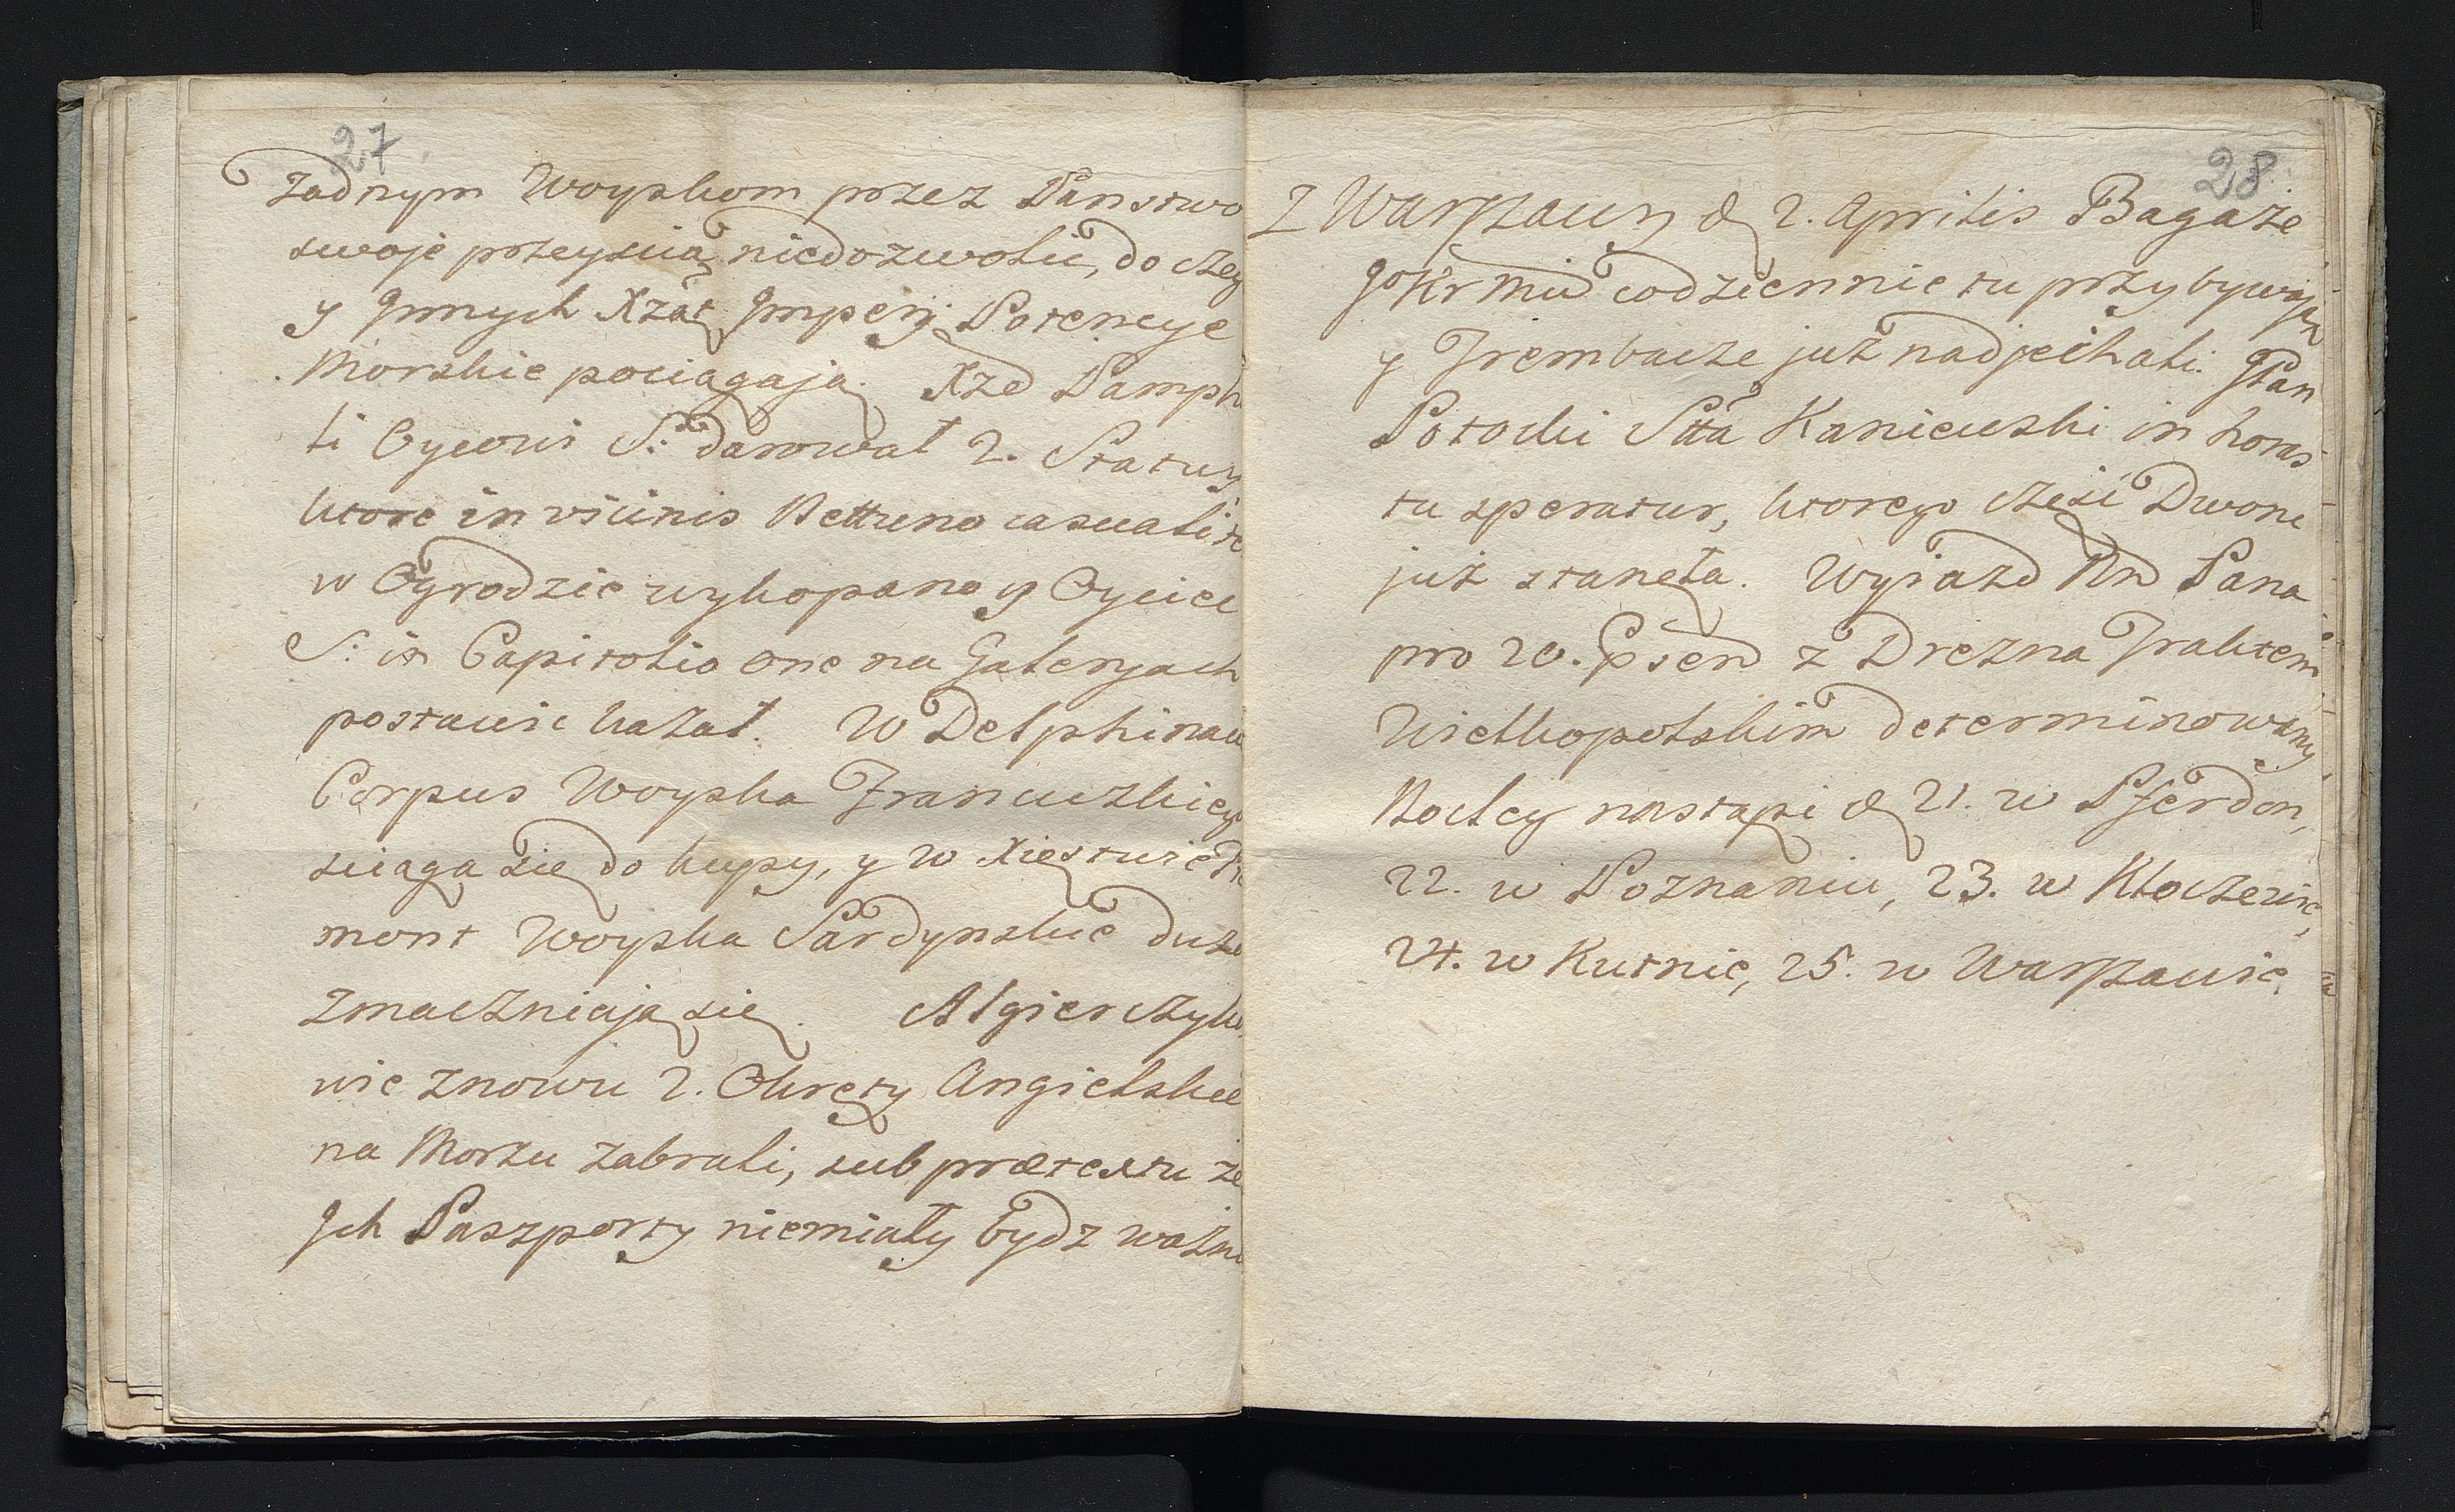 27
Zadnym Woyskom przez Panstwo
swoje przeyscia niedozwolic, do czeg
y Jnnych Xżąt Jmperij Potencye
Morskie pociągają. Xże Pamph
li Oycowi S: darowal 2. Statuy
ktore in vicinis Nettuno casualite
w Ogrodzie wykopano y Ociec
S: in Capitolio one na Galeryach
postawic kazał. W Delphinaci
Corpus Woyska Francuzkieg
sciąga się do kupy, y w Xięstwie Pie
mont Woyska Sardynskie duże
zmaczniają się. Algierczyko
wie znowu 2. Okręty Angielskie
na Morzu zabrali, sub prætextu że
Jch Paszporty niemiały bydz ważne
28
Z Warszawy d 2. Aprilis Bagaże
JoKrMci codziennie tu przybywają
y Trembacze już nadjechali. JPan
Potocki Stta Kaniewski in horas
tu speratur, ktorego część Dworu
już stanęła. Wyjazd Nn Pana
pro 20. psen z Drezna Traktem
Wielkopolskim determinowany
Noclegi nastąpi d 21. w Pferdon,
22. w Poznaniu, 23. w Kloczewie,
24. w Kutnie, 25. w Warszawie.